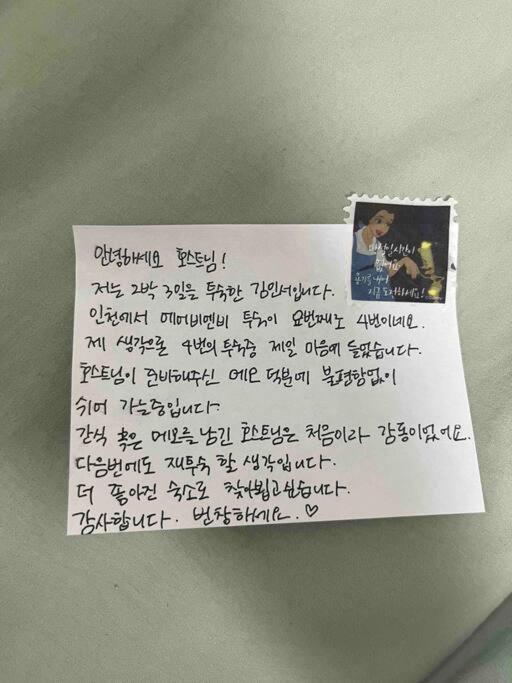 안녕하세요 호스트님!
저는 2박 3일을 투숙한 김인서입니다.
인천에서 에어비앤비 투숙이 요번째로 4번이네요.
제 생각으론 4번의 투숙중 제일 마음에 들었습니다.
호스트님이 준비해주신 메모 덕분에 불편함없이
쉬어 가는중입니다.
간식 혹은 메모를 남긴 호스트님은 처음이라 감동이었어요.
다음번에도 재투숙 할 생각입니다.
더 좋아진 숙소로 찾아뵙고싶습니다.
감사합니다. 번창하세요. ♡
망설일 시간이
없어요
용기를 내어
지금 도전하세요!